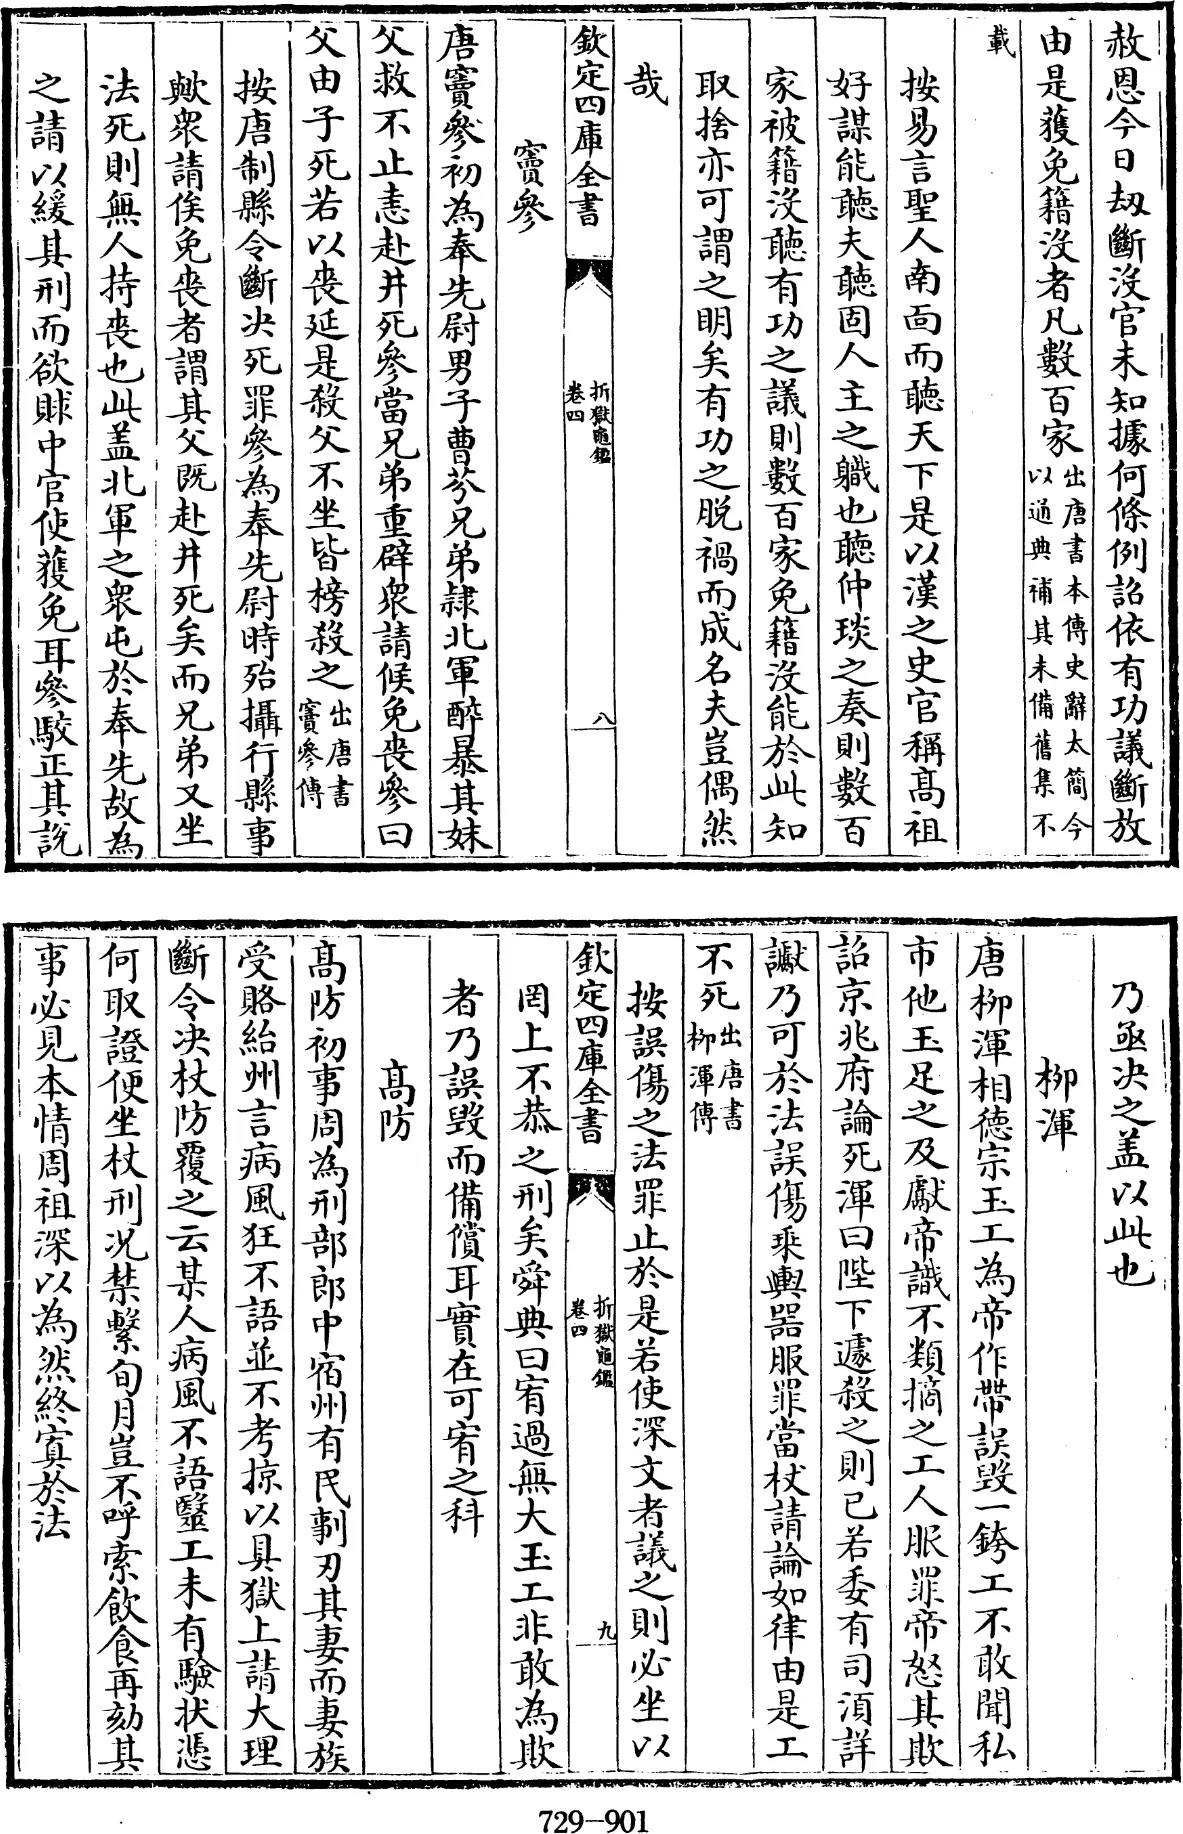 赦恩今日刼斷沒官未知據何條例詔依有功議斷放
由是獲免籍沒者凡數百家出唐書本傳史辭太簡今以通典補其未備舊集不
載
按易言聖人南面而聽天下是以漢之史官稱髙祖
好謀能聽夫聽固人主之職也聽仲琰之奏則數百
家被籍沒聽有功之議則數百家免籍沒能於此知
取捨亦可謂之明矣有功之脱禍而成名夫豈偶然
哉
欽定四庫全書
折獄龜鑑
卷四
八
竇參
唐竇參初為奉先尉男子曹芬兄弟隷北軍醉暴其妹
父救不止恚赴井死參當兄弟重辟衆請候免喪參曰
父由子死若以喪延是殺父不坐皆榜殺之出唐書竇參傳
按唐制縣令斷决死罪參為奉先尉時殆攝行縣事
歟衆請俟免喪者謂其父既赴井死矣而兄弟又坐
法死則無人持喪也此盖北軍之衆屯於奉先故為
之請以緩其刑而欲賕中官使獲免耳參駮正其説
乃亟决之盖以此也
柳渾
唐柳渾相德宗玉工為帝作帶誤毀一銙工不敢聞私
市他玉足之及獻帝識不類擿之工人服罪帝怒其欺
詔京兆府論死渾曰陛下遽殺之則已若委有司湏詳
讞乃可於法誤傷乘輿器服罪當杖請論如律由是工
不死出唐書柳渾傳
按誤傷之法罪止於是若使深文者議之則必坐以
欽定四庫全書
折獄龜鑑
卷四
九
罔上不恭之刑矣舜典曰宥過無大玉工非敢為欺
者乃誤毀而備償耳實在可宥之科
髙防
髙防初事周為刑部郎中宿州有民剚刃其妻而妻族
受賂紿州言病風狂不語並不考掠以具獄上請大理
斷令决杖防覆之云某人病風不語醫工未有驗狀憑
何取證便坐杖刑况禁繫旬月豈不呼索飲食再劾其
事必見本情周祖深以為然終寘於法
729-901